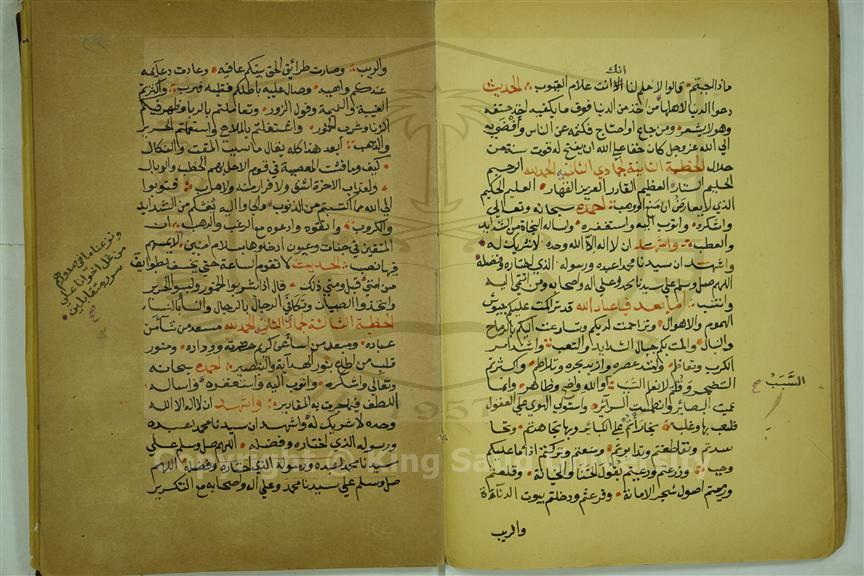 انك
ماذا اجبتم قالوا لا علم لنا انك انت علام الغيوب الحديث
دعوا الدنيا لاهلها من اخذ من الدنيا فوق ما يكفيه اخذ حتفه
وهو لا يشعر ومن جاع او احتاج فكتمه عن الناس وافضى به
الى الله عز وجل كان حقا على الله ان يفتح له قوت سنة من
حلال الخطبة الثانية جمادى الثانية الحمد لله الرحيم
الحليم الستار العظيم القادر العزيز القهار العليم الحكيم
الذي لا يعارض ان منع او وهب احمده سبحانه وتعالى
واشكره واتوب اليه واستغفره واساله النجاة من الشدايد
والعطب واشهد ان لا اله الا الله وحده لا شريك له
واشهد ان سيدنا محمدا عبده ورسوله الذي اختاره وفضله
اللهم صل وسلم على سيدنا محمد وعلى آله واصحابه ومن التجى اليه
وانتسب اما بعد فيا عباد الله قد تراكمت عليكم جيوش
الهموم والاهوال وتزاحمت لديكم وتسارعت اليكم بالرماح
والنبال والمت بكم رجال الشدايد والتعب واشتد امر
الكرب وتفاقم
التضجر وقلتم لا نعرف السبب اوالله واضح وظاهر وانما
السَّبَبْ
عميت البصائر وانطمست السرائر واستولى الهوى على العقول
فلعب بها وغلبه تجاراتم على الكبائر وبها تجاهرتم وتحا
سدتم وتقاطعتم وتدابرتم
وزرعتم ورعيتم بقول الخنا والخيانة وقلعتم
ورميتم اصول شجر الامانة وفرعتم ودخلتم بيوت الدناءة
والريب
والريب وصارت طرائق الحق بينكم عافيه وعادت دعائمه
عندكم واهيه وصال عليه باطلكم فغلبه فهرب واكثرتم
الغيبة والنميمة وقول الزور وتعاملتم بالربا وظهر فيكم
الزنا وشرب الخمور واشتغلتم بالملاهي واستعملتم الحرير
والذهب ابعد هذا كله يقال ما سبب المقت والنكال
كيف وما فشت المعصية في قوم الا حل بهم الخطب والوبال
ولعذاب الاخرة اشق ولا فرار منه ولا هرب فتوبوا
الى الله مما كسبتم من الذنوب والجاوا اليه ينقذكم من الشدايد
والكروب واتقوه وادعوه مع الرغب والرهب ان
المتقين في جنات وعيون ادخلوها بسلام امنين لا يمسهم
ونزعنا ما في صدورهم
من غل اخوانا على
سرر متقابلين
فيها نصب الحديث لا تقوم الساعة حتى يخسف بطوائف
من امتي قيل ومتى ذلك قال اذا شربوا الخمور ولبسوا الحرير
واتخذوا القينات وتكافى الرجال بالرجال والنساء بالنساء
الخطبة الثالثة جماد الثاني الحمد لله مسعد من شا من
عباده ومبعد من اسا منهم عن حضرته ووداده ومنور
قلب من اطاع بنور الهداية والتبصير احمده سبحانه
وتعالى واشكره واتوب اليه واستغفره واساله
اللطف فيما جرت به المقادير واشهد ان لا اله الا الله
وحده لا شريك له واشهد ان سيدنا محمدا عبده
ورسوله الذي اختاره وفضله اللهم صل وسلم على
سيدنا محمد عبده ورسوله الذي اختاره وفضله اللهم
صل وسلم على سيدنا محمد وعلى آله واصحابه مع التكرير
1957
Copyright © King Saud University